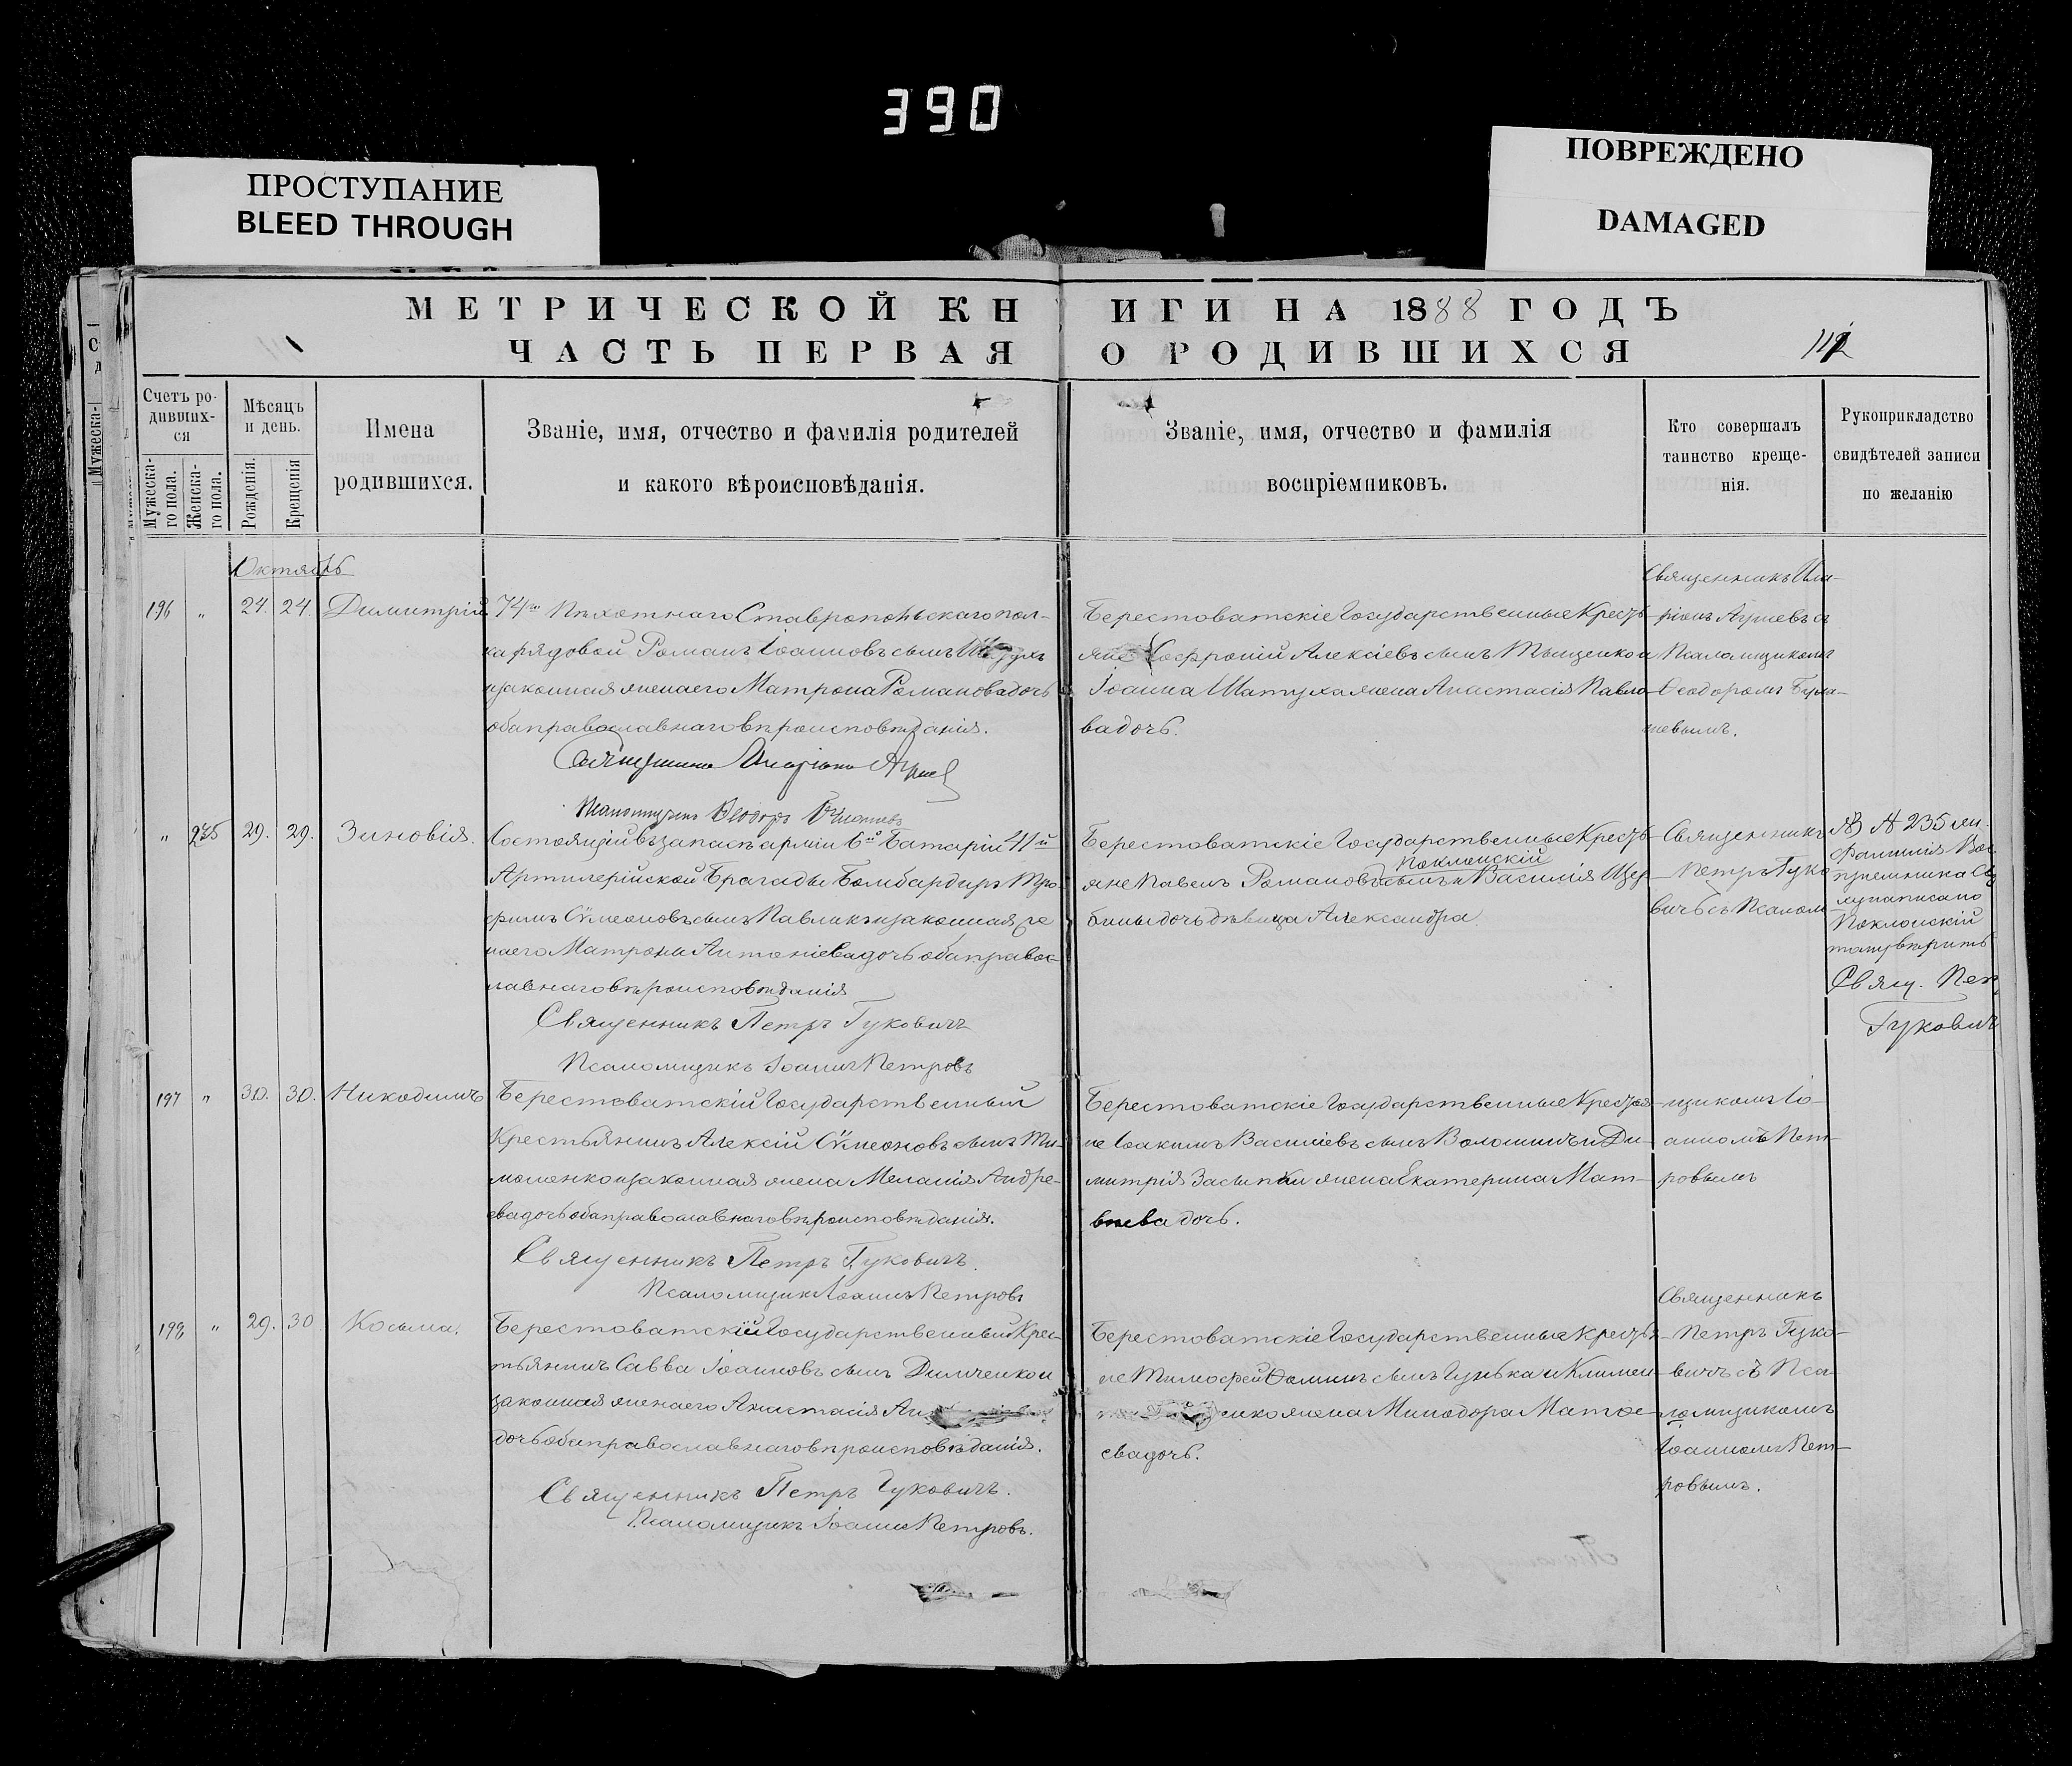 390
ПРОСТУПАНИЕ
BLEED THROUGH
ПОВРЕЖДЕНО
DAMAGED
МЕТРИЧЕСКОЙ КНИГИ НА 1888 ГОДЪ
ЧАСТЬ ПЕРВАЯ О РОДИВШИХСЯ
112
Счетъ ро-
дивших-
ся
Мужеска-
го пола.
Женска-
го пола.
Мѣсяцъ
и день.
Рожденія.
Крещенія
Имена
родившихся.
Званіе, имя, отчество и фамилія родителей
и какого вѣроисповѣданія.
Званіе, имя, отчество и фамилія
воспріемниковъ.
Кто совершалъ
таинство креще-
нія.
Рукоприкладство
свидѣтелей записи
по желанію
Октябрь
196 " 24. 24. Димитрій
74го Пѣхотнаго Ставропольскаго пол-
ка рядовой Романъ Іоанновъ сынъ
и законная жена его Матрона Романова дочь
оба православнаго вѣроисповѣданія.
Священникъ Иларіонъ
Псаломщикъ Ѳеодоръ
Берестоватскіе Государственные Кресть-
яне Софроній Алексіевъ сынъ Тыщенко и
Іоанна Шатуха жена Анастасія Павло-
ва дочь.
Священникъ Ила-
ріонъ съ
Псаломщикомъ
Ѳеодоромъ
" 235 29. 29. Зиновія.
Состоящій въ запасѣ арміи 6й Батареи 11й
Артилерійской Брагады Бомбардиръ Тро-
фимъ Сѵмеоновъ сынъ Павликъ и законная же
на его Матрона Антоніева дочь оба правос-
лавнаго вѣроисповѣданія
Священникъ Петръ Гуковичъ
Псаломщикъ Іоаннъ Петровъ
Берестоватскіе Государственные Кресть-
Поклонскій
яне Павелъ Романовъ сынъ и Василія Щер-
бины дочь дѣвица Александра
Священникъ
Петръ Гуко
вичъ съ Псалом
№ 235
Фамилія Вос
пріемника
написано
Поклонскій
вѣрить
Свящ. Пет
Гукович
197 " 30. 30. Никодимъ
Берестоватскій Государственный
Крестьянинъ Алексій Сѵмеоновъ сынъ Ти-
мошенко и законная жена Меланія Андре-
ева дочь оба православнаго вѣроисповѣданія.
Священникъ Петръ Гуковичъ.
Псаломщикъ Іоаннъ Петровъ
Берестоватскіе Государственные Крестья-
не Іоакимъ Василіевъ сынъ Волошинъ и Ди-
митрія Засыпки жена Екатерина Мат-
вѣева дочь.
щикомъ Іо-
анномъ Пет-
ровымъ
198 " 29. 30 Косьма.
Берестоватскій Государственный Крес-
тьянинъ Савва Іоанновъ сынъ Димченко и
законная жена его Анастасія
дочь оба православнаго вѣроисповѣданія.
Священникъ Петръ Гуковичъ.
Псаломщикъ Іоаннъ Петровъ.
Берестоватскіе Государственные Крестья-
не Тимоѳей Ѳоминъ сынъ Гунька и Климен-
жена Минодора Матѳе-
ева дочь.
Священникъ
Петръ Гуко-
вичъ съ Пса
ломщикомъ
Іоанномъ Пет-
ровымъ.